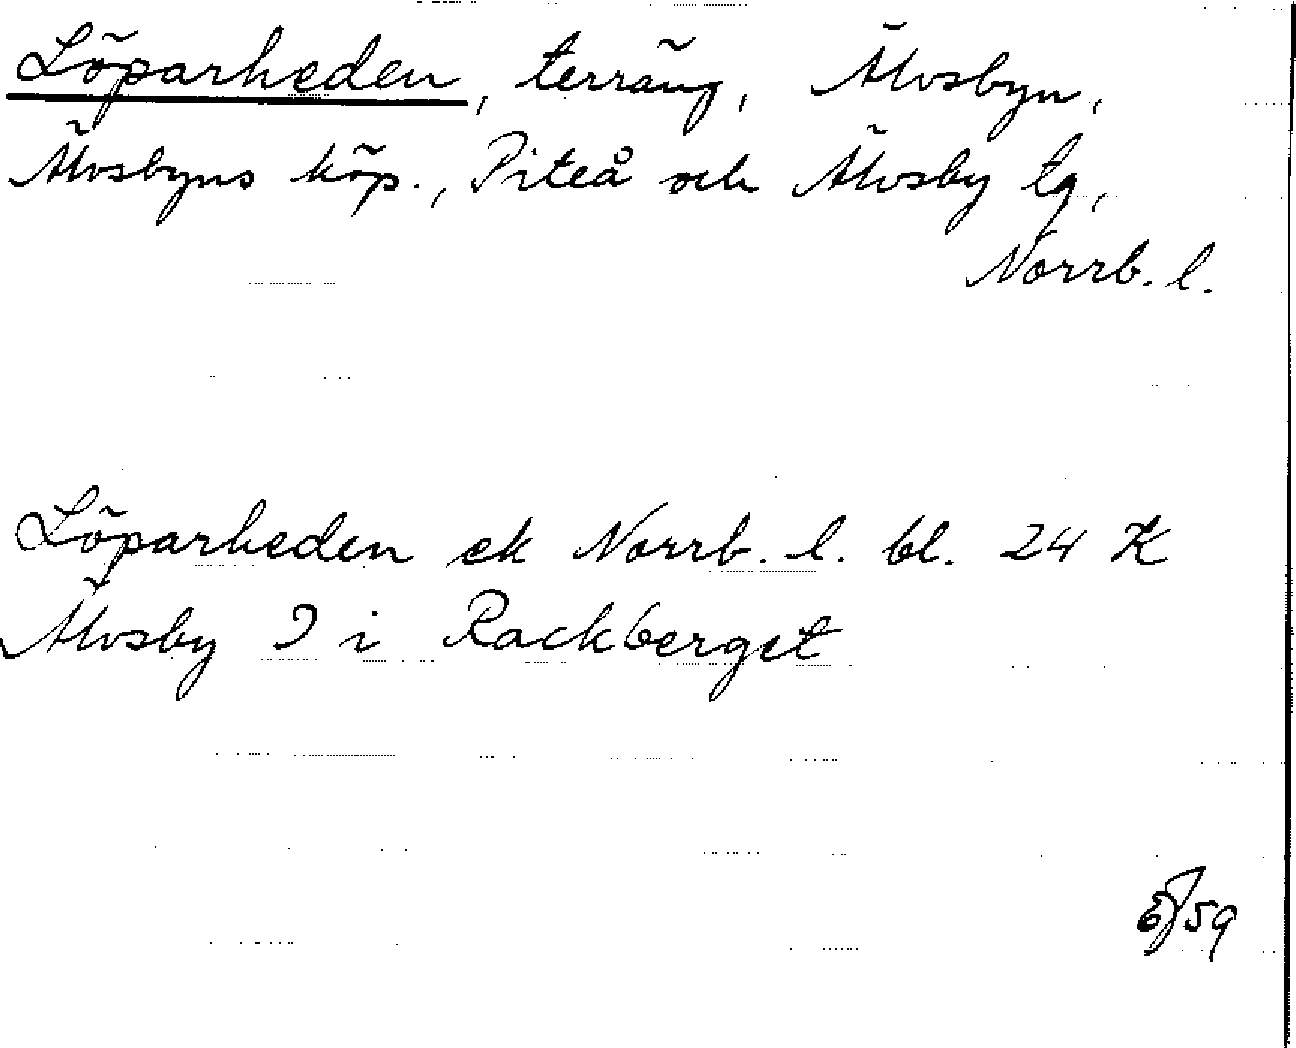 Löparheden, terräng, Älvsbyn,
Älvsbyns köp., Piteå och Älvsby tg,
Norrb. l.
Löparheden ek Norrb. l. bl. 24 K
Älvsby I i Rackberget
/59